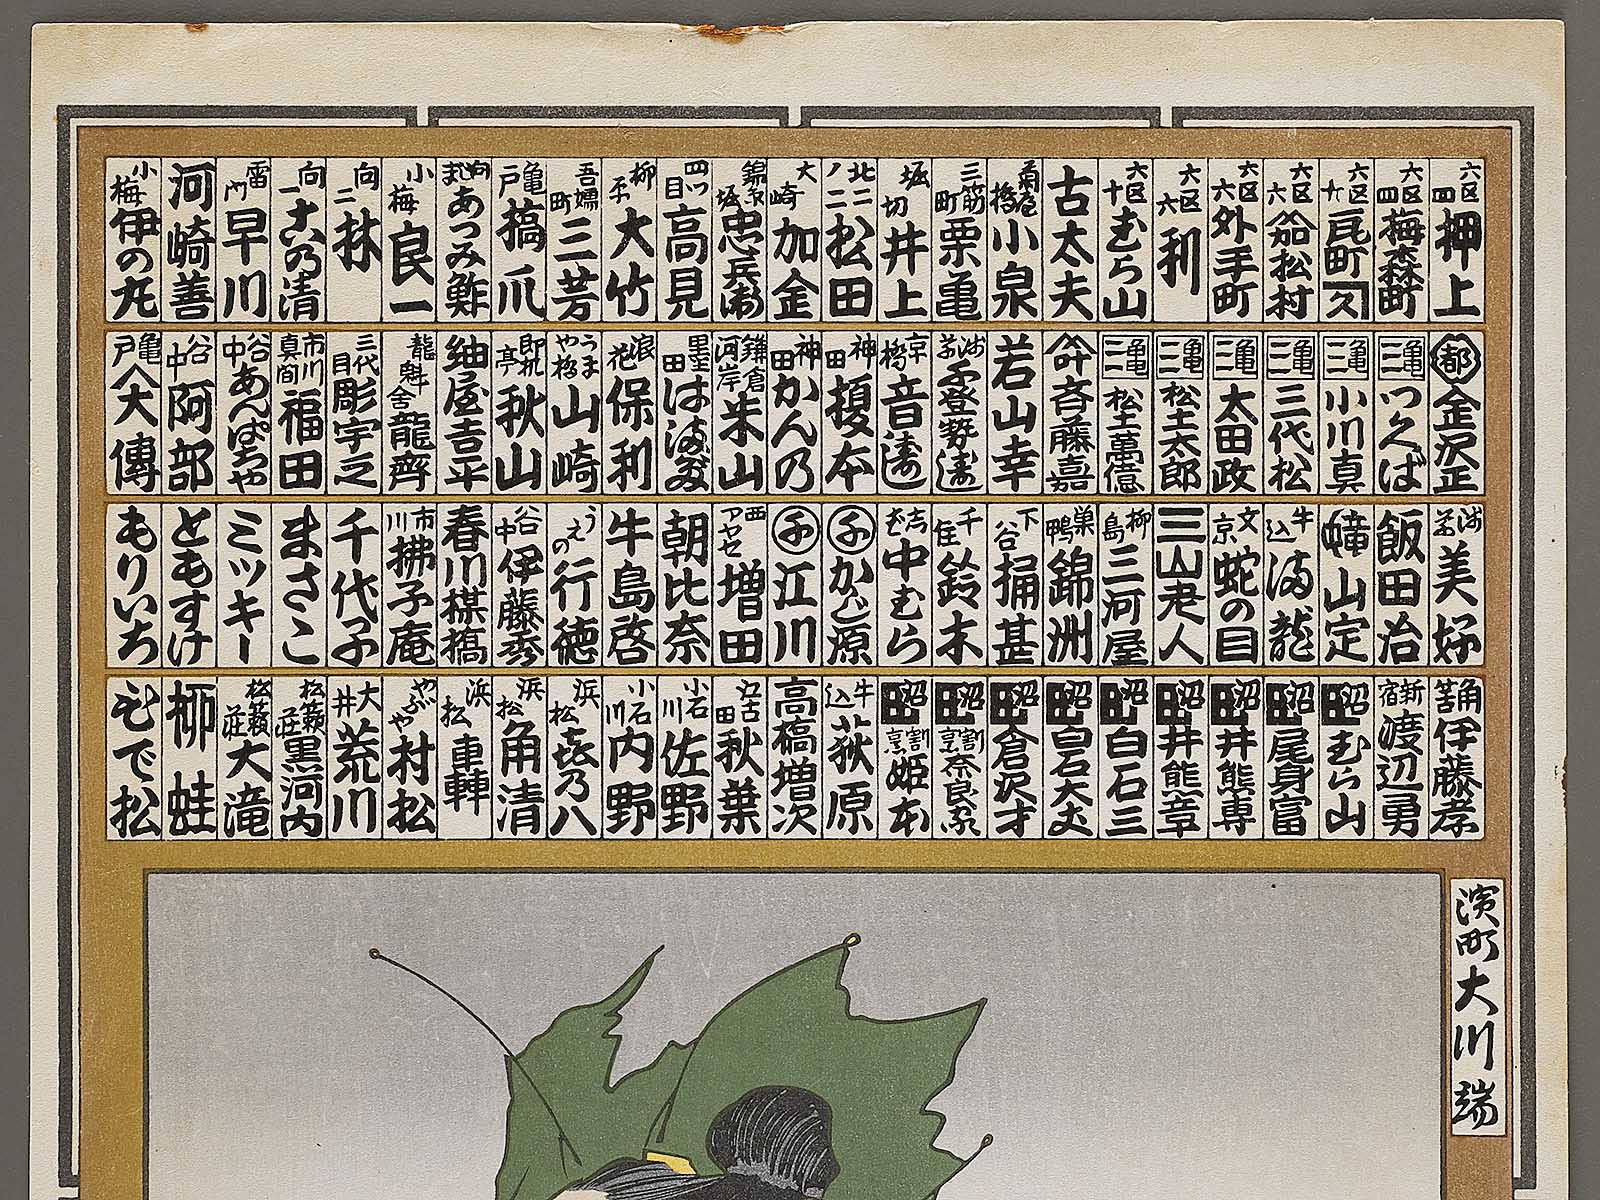 六区四 押上
六区四 梅森町
六区九 瓦町 久
六区六 松村
六区六 外手町
六区六 利
六区十 むら山
古太夫
菊屋橋 小泉
三筋町 栗亀
堀切 井上
北二ノ二 松田
大崎 加金
錦糸堀 忠兵衛
四ツ目 高見
柳平 大竹
吾嬬町 三芳
亀戸 橋爪
向じま あつみ鮓
小梅 良一
向二 林
向一 古乃清
雷門 早川
河崎善
小梅 伊の丸
都 金沢正
亀三二 つくば
亀三二 小川真
亀三二 三代松
亀三二 太田政
亀三二 松土太郎
亀三二 松土萬億
斉藤嘉
若山幸
浅草 登勢達
京橋 音達
神田 榎本
神田 かんの
鎌倉河岸 米山
墨田 はま
浪花 保利
うまや橋 山崎
即机亭 秋山
紬屋吉平
龍魁舎 龍齊
三代目 彫宇之
市川真間 福田
谷中 あんぱちや
谷中 阿部
亀戸 大傳
浅草 美好
飯田治
山定
牛込 満龍
文京 蛇の目
三山老人
柳島 三河屋
巣鴨 錦洲
下谷 捅甚
千住 鈴木
志むら 中むら
千 かじ原
千 江川
西アヤセ 増田
朝比奈
牛島啓
うえの 行徳
谷中 伊藤秀
春川楳橋
市川 拂子庵
千代子
まさこ
ミッキー
ともすけ
もりいち
角筈 伊藤孝
新宿 渡辺勇
沼田 むら山
沼田 尾身富
沼田 井熊専
沼田 井熊章
沼田 白石三
沼田 白石大丈
沼田 倉沢才
沼田 割烹 奈良家
沼田 割烹 姫本
牛込 荻原
高橋増次
五古田 秋葉
小石川 佐野
小石川 内野
浜松 㐂乃八
浜松 角清
浜松 車轉
やぶや 村松
大井 荒川
松籟荘 黒河内
松籟荘 大滝
柳蛙
ひで松
濱町大川端